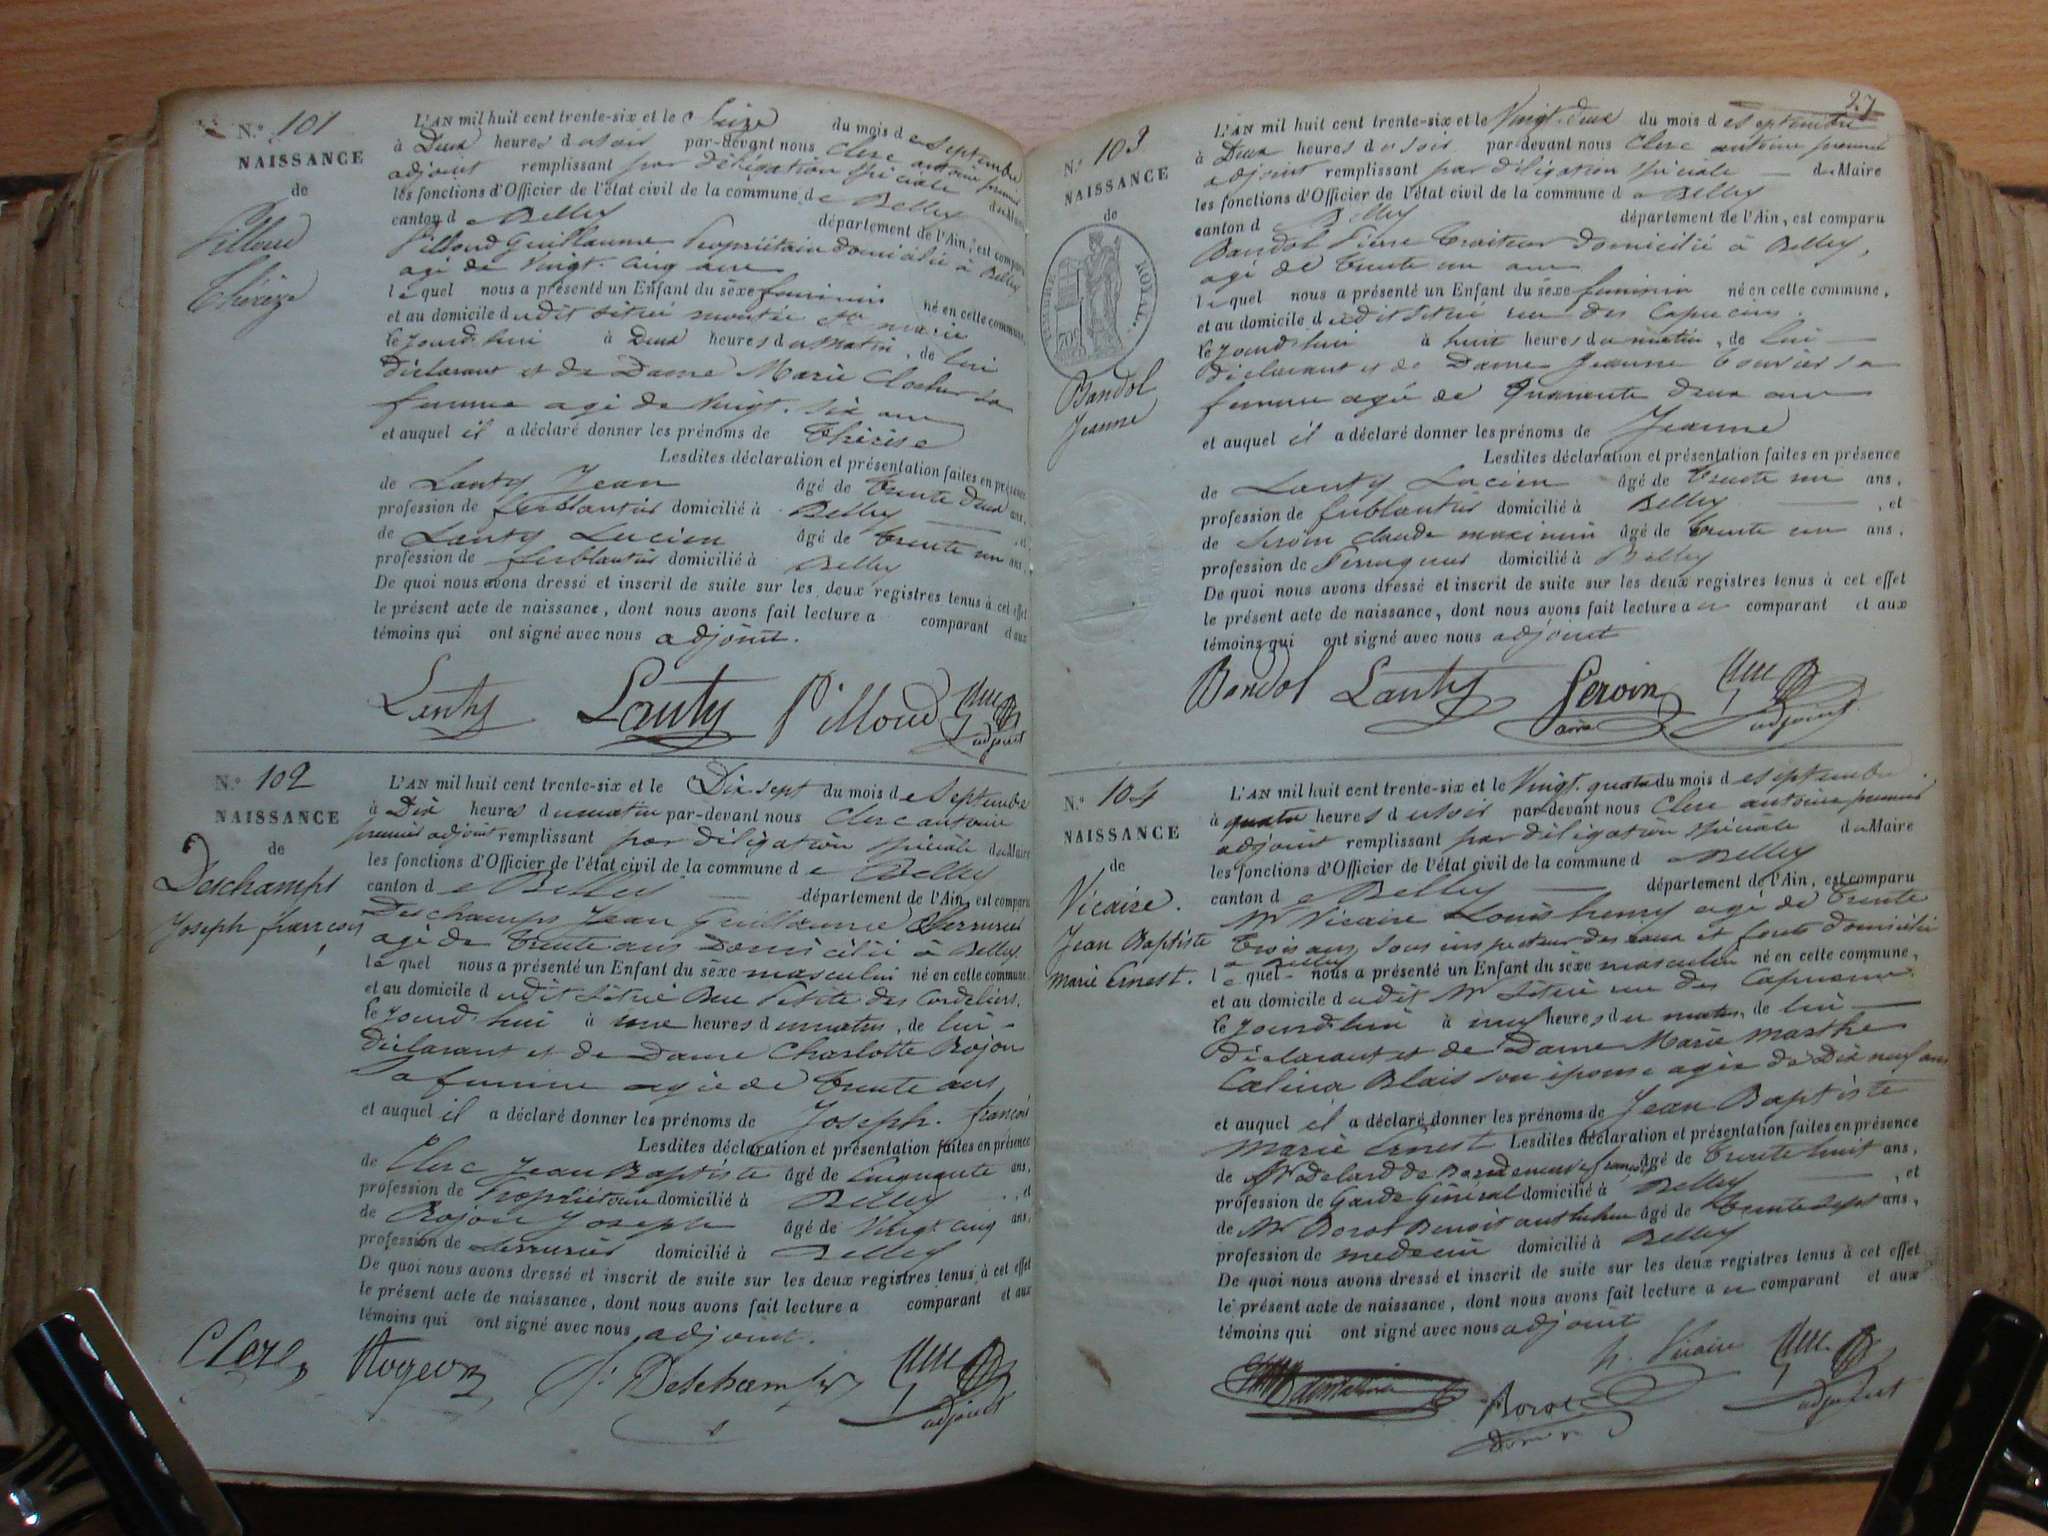 N.º 101
NAISSANCE
de
Pilloud
Thérèze
L'AN mil huit cent trente-six et le Seize du mois de septembre
à Deux heures du soir par-devant nous Clerc antoine premier
adjoint remplissant par délégation spéciale du Maire
les fonctions d'Officier de l'état civil de la commune de Belley
canton de Belley département de l'Ain, est comparu
Pilloud Guillaume Propriétaire domicilié à Belley
agé de Vingt-cinq ans
lequel nous a présenté un Enfant du sèxe feminin né en cette commune,
et au domicile dudit situé montée Ste marie
le jourd'hui à Deux heures du matin, de lui
déclarant et de Dame Marie
femme agé de Vingt-six ans
et auquel il a déclaré donner les prénoms de Thérèse
Lesdites déclaration et présentation faites en présence
de Lanty Jean âgé de trente Deux ans,
profession de ferblantier domicilié à Belley, et
de Lanty Lucien âgé de trente un ans,
profession de ferblantier domicilié à Belley
De quoi nous avons dressé et inscrit de suite sur les deux registres tenus à cet effet
le présent acte de naissance, dont nous avons fait lecture a comparant et aux
témoins qui ont signé avec nous adjoint.
Lanty Lanty Pilloud Clerc adjoint
N.º 102
NAISSANCE
de
Deschamps
Joseph françois
L'AN mil huit cent trente-six et le Dix sept du mois de Septembre
à Dix heures du matin par-devant nous Clerc antoine
premier adjoint remplissant par délégation spéciale du Maire
les fonctions d'Officier de l'état civil de la commune de Belley
canton de Belley département de l'Ain, est comparu
Deschamps Jean Guillaume Serrurier
agé de trente ans Domicilié à Belley
lequel nous a présenté un Enfant du sèxe masculin né en cette commune
et au domicile dudit situé Rue Petite des Cordeliers,
le jourd'hui à une heures du matin, de lui
déclarant et de Dame Charlotte Rojon
sa femme agée de trente ans
et auquel il a déclaré donner les prénoms de Joseph. françois
Lesdites déclaration et présentation faites en présence
de Clerc Jean Baptiste âgé de Cinquante ans,
profession de Propriétaire domicilié à Belley, et
de Rojon Joseph âgé de Vingt cinq ans,
profession de Serrurier domicilié à Belley
De quoi nous avons dressé et inscrit de suite sur les deux registres tenus à cet effet
le présent acte de naissance, dont nous avons fait lecture a comparant et aux
témoins qui ont signé avec nous adjoint.
Clerc Deschamps Clerc adjoint
27
N.º 103
NAISSANCE
de
ROYAL.
Bandol
Jeanne
L'AN mil huit cent trente-six et le Vingt-deux du mois de septembre
à Deux heures du soir par-devant nous Clerc antoine premier
adjoint remplissant par délégation spéciale du Maire
les fonctions d'Officier de l'état civil de la commune de Belley
canton de Belley département de l'Ain, est comparu
Bandol Pierre traiteur domicilié à Belley,
agé de trente un ans
lequel nous a présenté un Enfant du sèxe feminin né en cette commune,
et au domicile dudit situé rue des Capucins.
le jourd'hui à huit heures du matin, de lui
déclarant et de Dame Jeanne sa
femme agée de Quarante deux ans
et auquel il a déclaré donner les prénoms de Jeanne
Lesdites déclaration et présentation faites en présence
de Lanty Lucien âgé de trente un ans,
profession de ferblantier domicilié à Belley, et
de Seroin claude maximin âgé de trente un ans,
profession de Perruquier domicilié à Belley
De quoi nous avons dressé et inscrit de suite sur les deux registres tenus à cet effet
le présent acte de naissance, dont nous avons fait lecture au comparant et aux
témoins qui ont signé avec nous adjoint
Bandol Lanty Seroin Clerc adjoint
N.º 104
NAISSANCE
de
Vicaire.
Jean Baptiste
Marie Ernest.
L'AN mil huit cent trente-six et le Vingt-quatre du mois de septembre
à quatre heures du soir par-devant nous Clerc antoine premier
adjoint remplissant par délégation spéciale du Maire
les fonctions d'Officier de l'état civil de la commune de Belley
canton de Belley département de l'Ain, est comparu
Mr Vicaire Louis henry agé de trente
trois ans, Sous inspecteur des eaux et forets domicilié
à Belley
lequel nous a présenté un Enfant du sèxe masculin né en cette commune,
et au domicile dudit Mr situé rue des Capucins
le jourd'hui à neuf heures du matin, de lui
déclarant et de Dame Marie Marthe
Calina Blais son épouse agée de Dix neuf ans
et auquel il a déclaré donner les prénoms de Jean Baptiste
Marie Ernest Lesdites déclaration et présentation faites en présence
de Mr françois âgé de trente huit ans,
profession de Garde Général domicilié à Belley, et
de Mr Borot Benoit âgé de trente sept ans,
profession de medecin domicilié à Belley
De quoi nous avons dressé et inscrit de suite sur les deux registres tenus à cet effet
le présent acte de naissance, dont nous avons fait lecture au comparant et aux
témoins qui ont signé avec nous adjoint
h. Vicaire Clerc
Borot adjoint